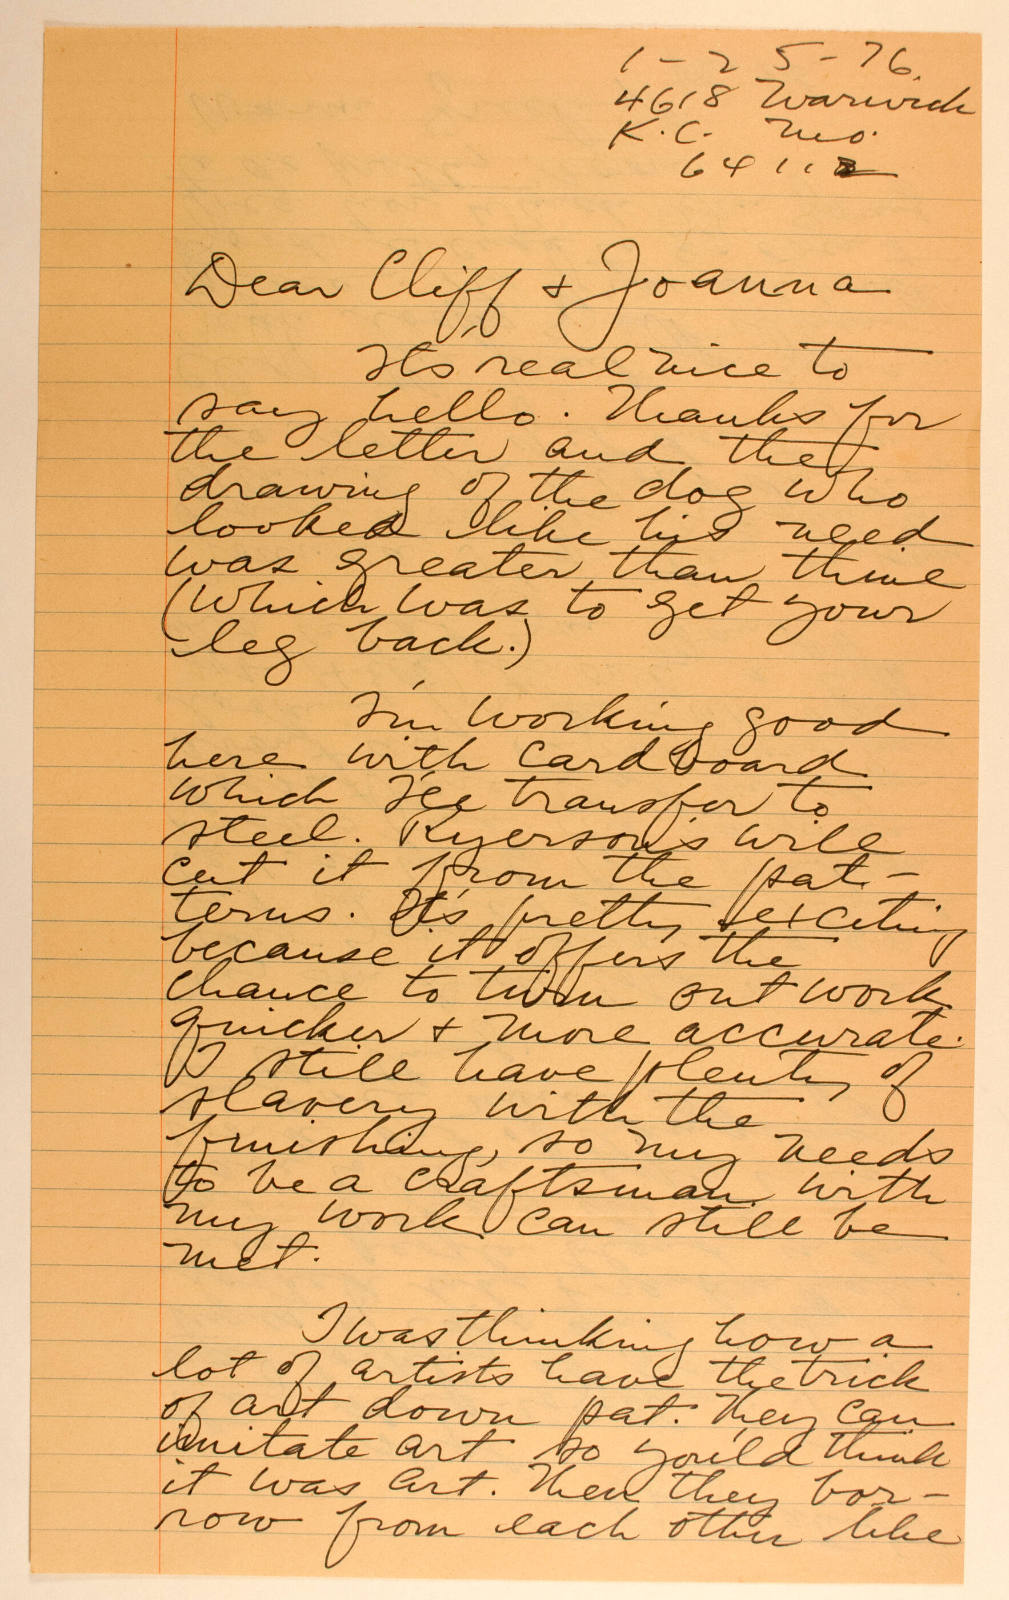 1-25-76.
4618 Warwick
K.C. Mo.
64112
Dear Cliff + Joanna
It's real nice to
say hello. Thanks for
the letter and the
drawing of the dog who
looked like his need
was greater than thine
(Which was to get your
leg back.)
I'm working good
here with cardboard
which I'll transfer to
steel. Ryerson's will
cut it from the pat-
terns. It's pretty exciting
because it offers the
chance to turn out work
quicker + more accurate.
I still have plenty of
slavery with the
finishing, so my needs
to be a craftsman with
my work can still be
met.
I was thinking how a
lot of artists have the trick
of art down pat. They can
imitate art so you'd think
it was art. Then they bor-
row from each other like